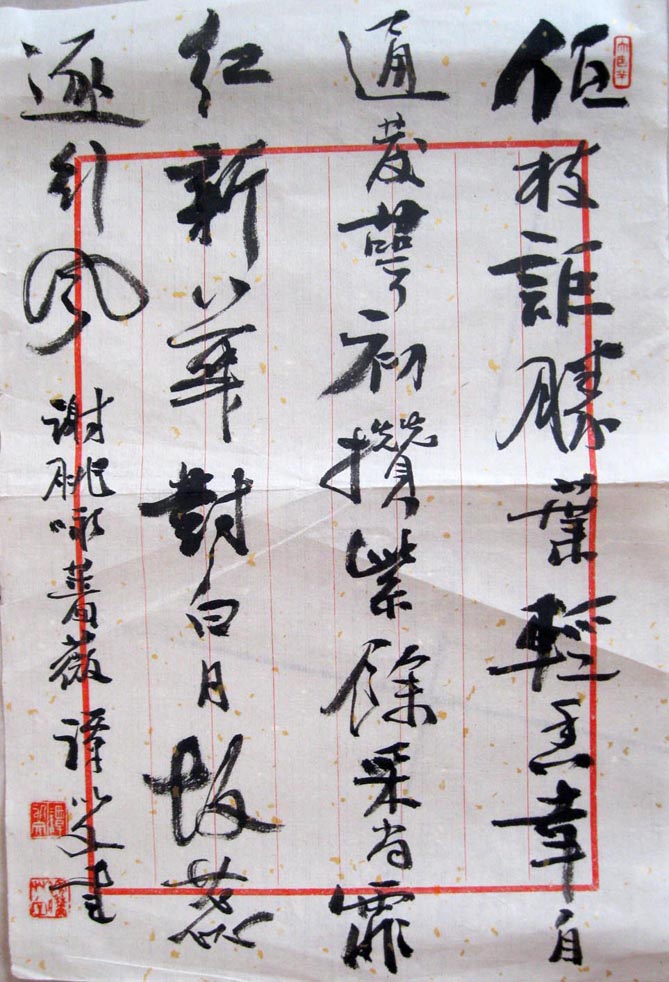 低枝詎勝葉輕香幸自
通發萼初攢紫餘采尚霏
紅新華對白日故蕊
逐行風
謝朓咏薔薇 譚以文書